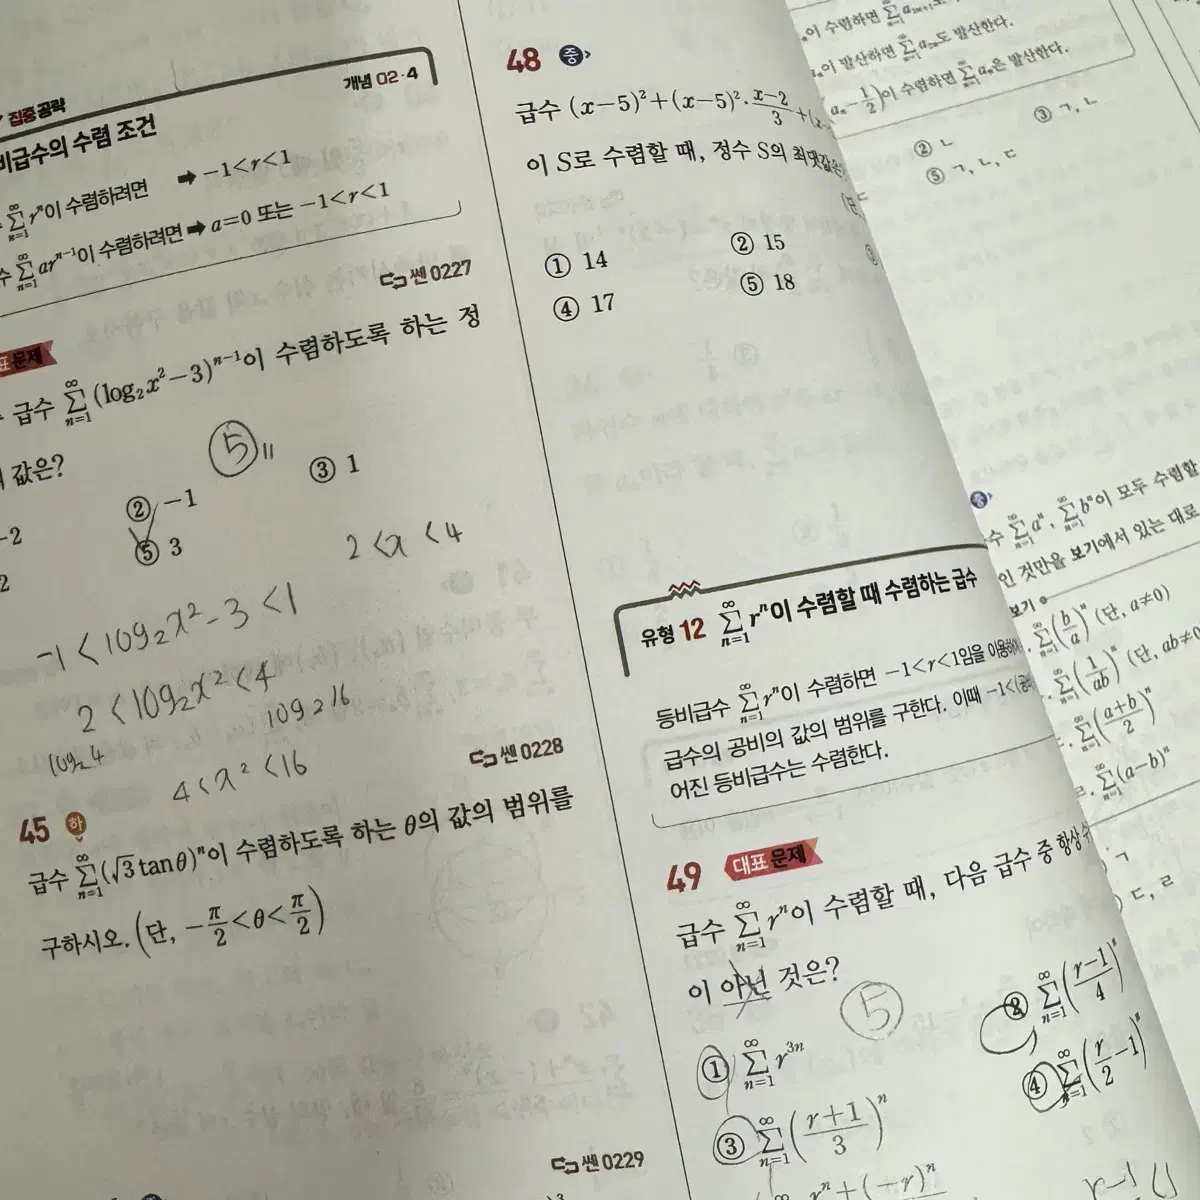 집중공략
개념 02·4
비급수의 수렴 조건
∑_{n=1}^{∞} rⁿ이 수렴하려면 ➡ -1<r<1
수 ∑_{n=1}^{∞} arⁿ⁻¹이 수렴하려면 ➡ a=0 또는 -1<r<1
쎈 0227
문제
급수 ∑_{n=1}^{∞} (log₂x²-3)ⁿ⁻¹이 수렴하도록 하는 정
값은?
⑤
② -1
③ 1
⑤ 3
2<x<4
-1<log₂x²-3<1
2<log₂x²<4
log₂4
log₂16
4<x²<16
쎈 0228
45 하
급수 ∑_{n=1}^{∞} (√3 tanθ)ⁿ이 수렴하도록 하는 θ의 값의 범위를
구하시오. (단, -π/2<θ<π/2)
쎈 0229
48 중
급수 (x-5)²+(x-5)²·(x-2)/3+
이 S로 수렴할 때, 정수 S의 최댓값은
① 14
② 15
④ 17
⑤ 18
유형 12 ∑_{n=1}^{∞} rⁿ이 수렴할 때 수렴하는 급수
등비급수 ∑_{n=1}^{∞} rⁿ이 수렴하면 -1<r<1임을 이용하여
급수의 공비의 값의 범위를 구한다. 이때 -1<(공
어진 등비급수는 수렴한다.
49 대표 문제
급수 ∑_{n=1}^{∞} rⁿ이 수렴할 때, 다음 급수 중 항상 수
이 아닌 것은?
⑤
① ∑_{n=1}^{∞} r³ⁿ
② ∑_{n=1}^{∞} ((r-1)/4)ⁿ
③ ∑_{n=1}^{∞} ((r+1)/3)ⁿ
④ ∑_{n=1}^{∞} (r/2-1)ⁿ
rⁿ+(-r)ⁿ
이 수렴하면
이 발산하면 ∑_{n=1}^{∞} a₂ₙ도 발산한다.
(aₙ-1/2)이 수렴하면 ∑_{n=1}^{∞} aₙ은 발산한다.
② ㄴ
③ ㄱ, ㄴ
⑤ ㄱ, ㄴ, ㄷ
중
수 ∑_{n=1}^{∞} aⁿ, ∑_{n=1}^{∞} bⁿ이 모두 수렴할
인 것만을 보기에서 있는 대로
보기
∑_{n=1}^{∞} (b/a)ⁿ (단, a≠0)
∑_{n=1}^{∞} (1/ab)ⁿ (단, ab≠0
∑_{n=1}^{∞} ((a+b)/2)ⁿ
ㄹ. ∑_{n=1}^{∞} (a-b)ⁿ
ㄱ
ㄷ, ㄹ